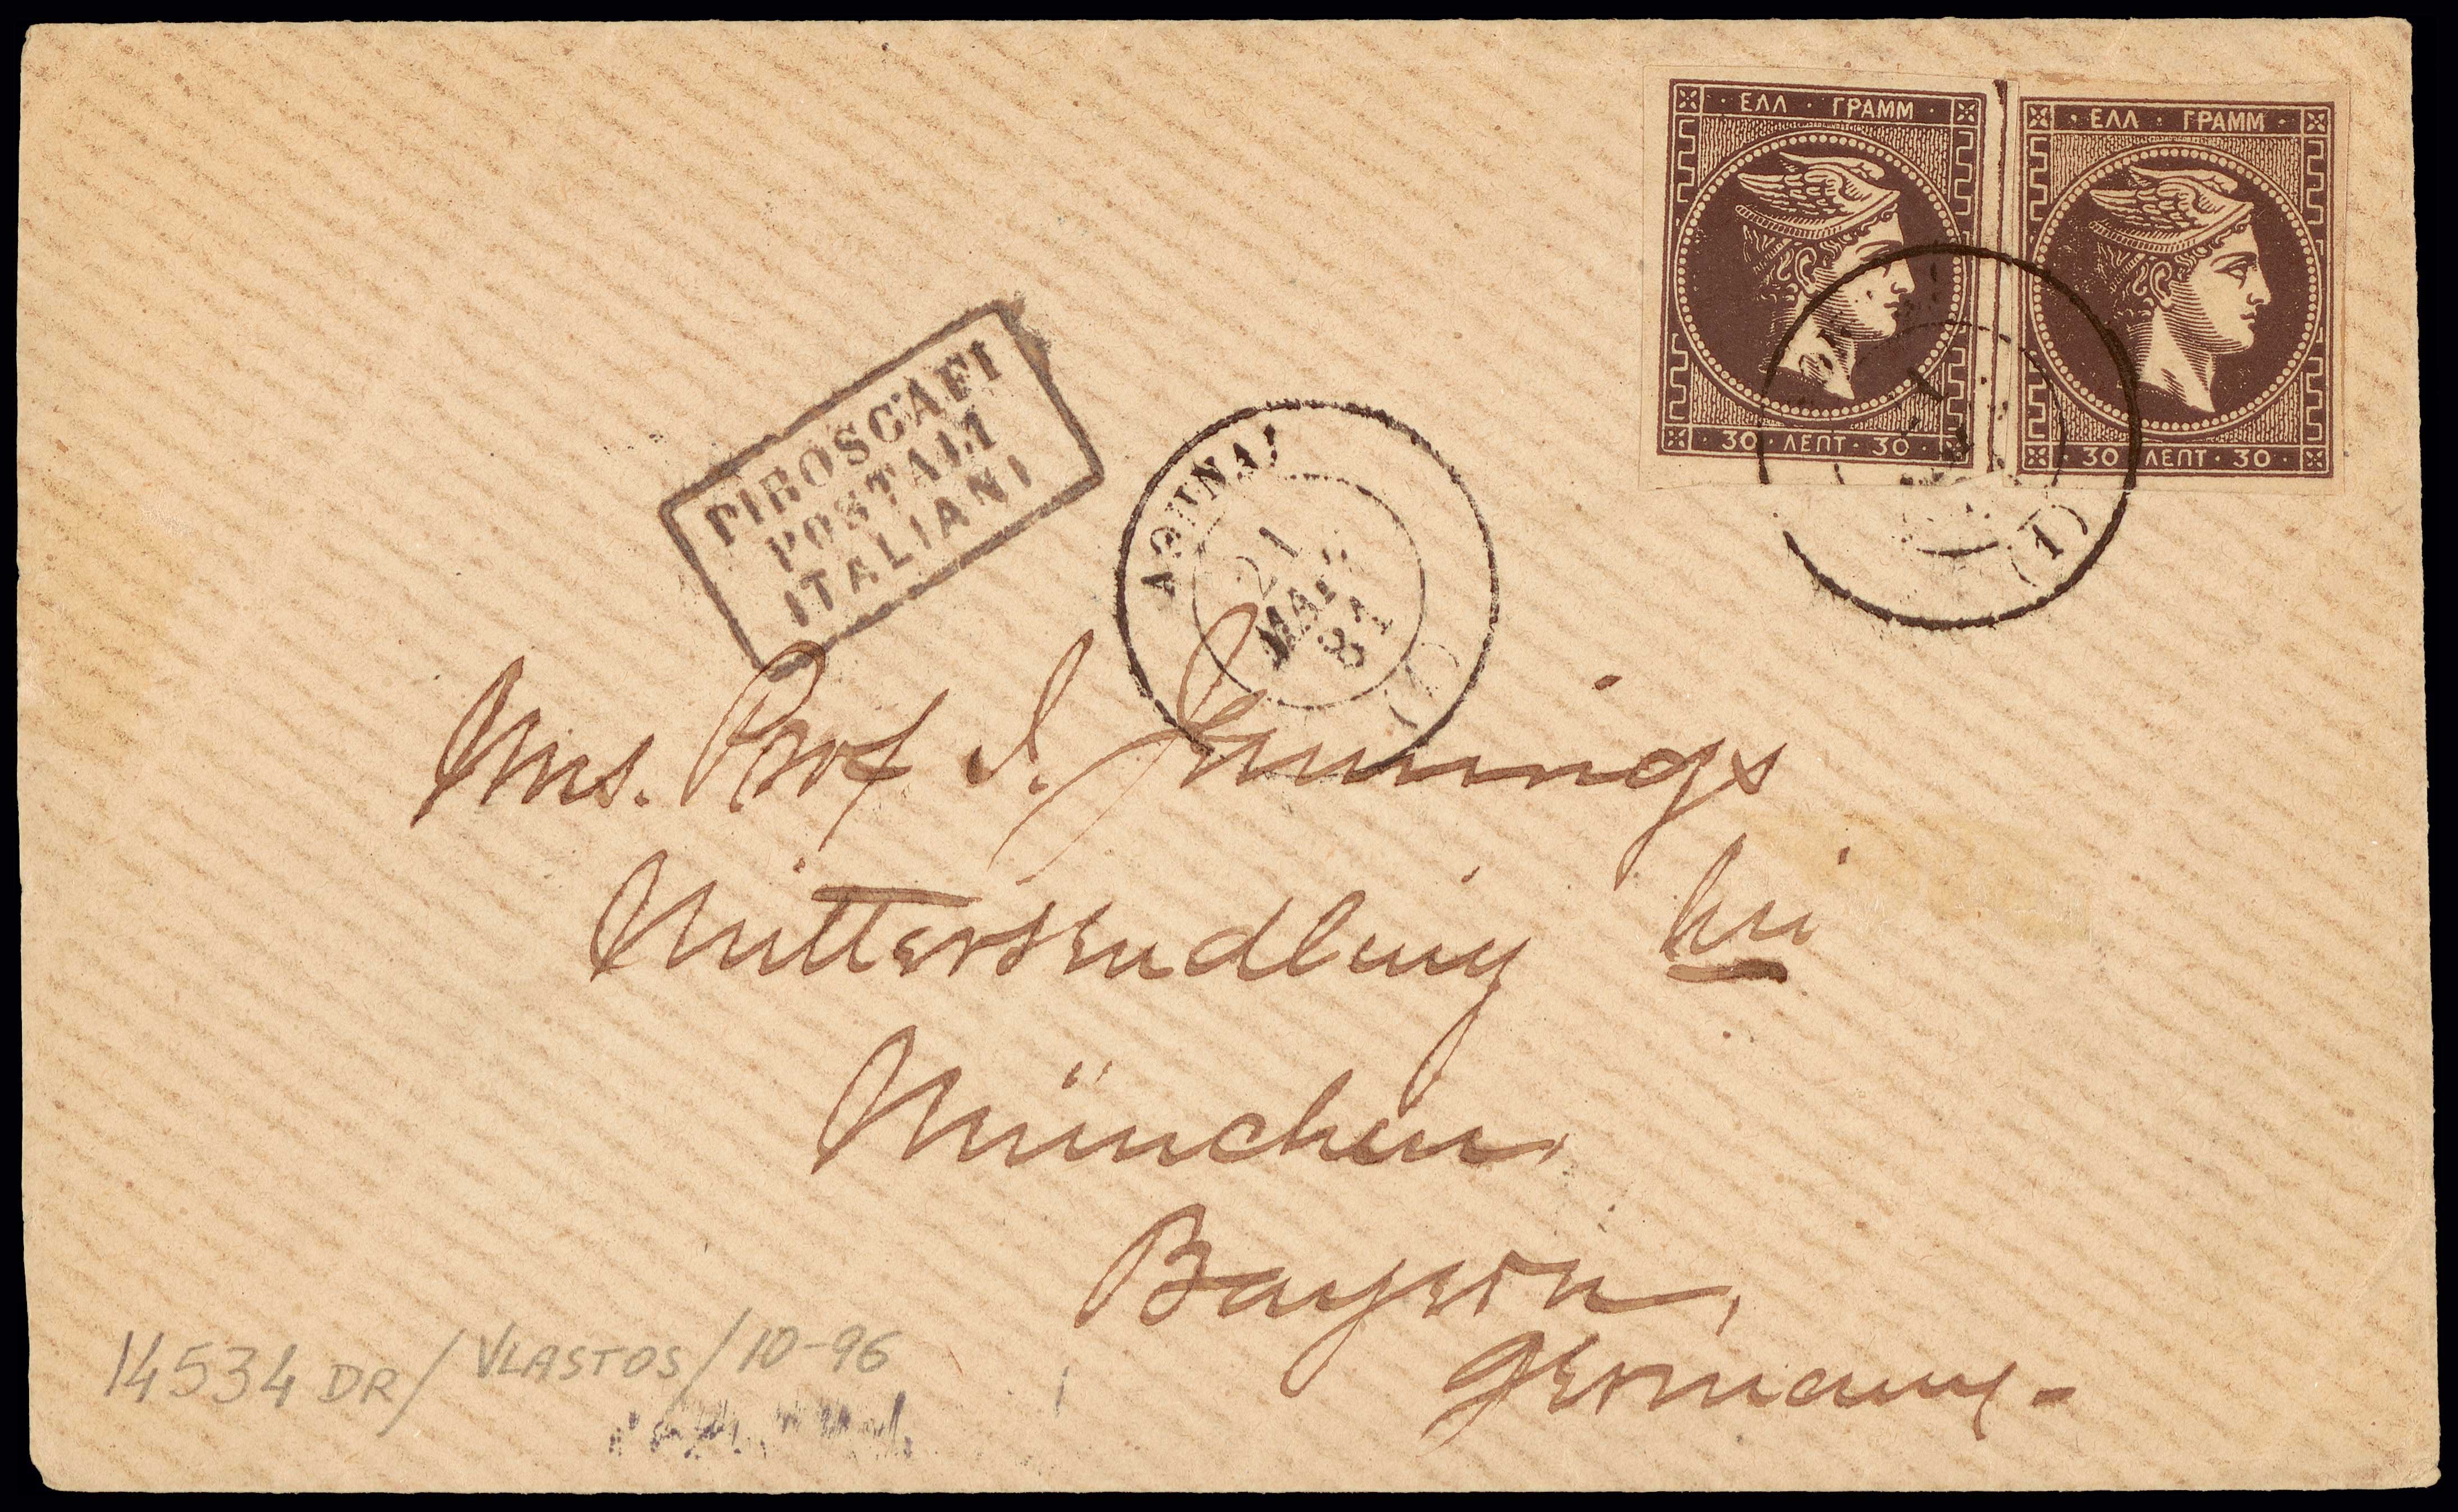 · ΕΛΛ · ΓΡΑΜΜ ·
· 30 · ΛΕΠΤ · 30 ·
· ΕΛΛ · ΓΡΑΜΜ ·
· 30 · ΛΕΠΤ · 30 ·
(1)
PIROSCAFI
POSTALI
ITALIANI
ΑΘΗΝΑΙ
21
ΜΑΡΤ.
81
(1)
Mrs. Prof I. Jennings
Mittersendling bei
München
Bayern,
Germany-
14534 DR/VLASTOS/10-96